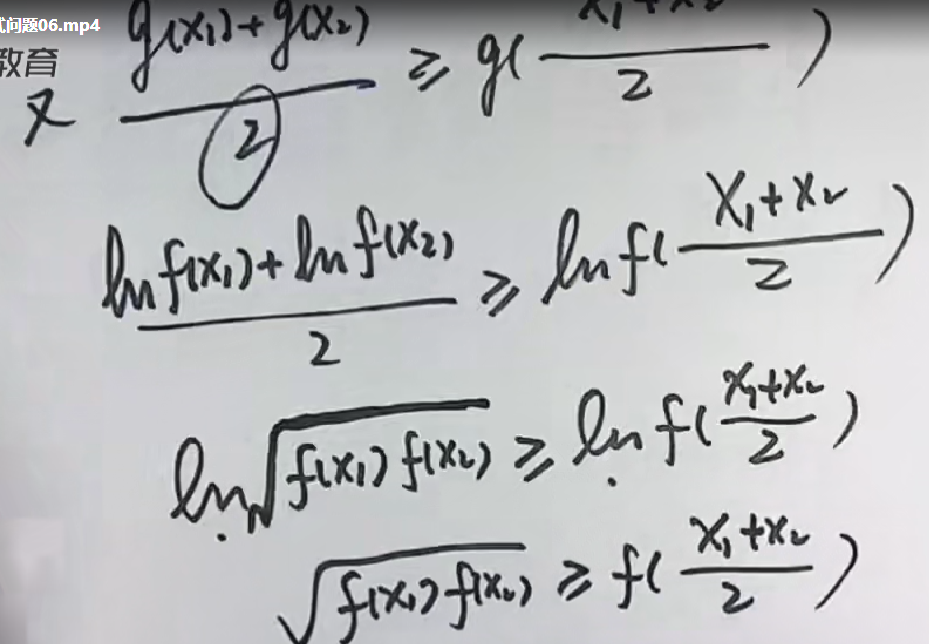 式问题06.mp4
教育
又 (g(x₁)+g(x₂))/2 ≥ g((x₁+x₂)/2)
(ln f(x₁)+ln f(x₂))/2 ≥ ln f((x₁+x₂)/2)
ln√(f(x₁) f(x₂)) ≥ ln f((x₁+x₂)/2)
√(f(x₁) f(x₂)) ≥ f((x₁+x₂)/2)